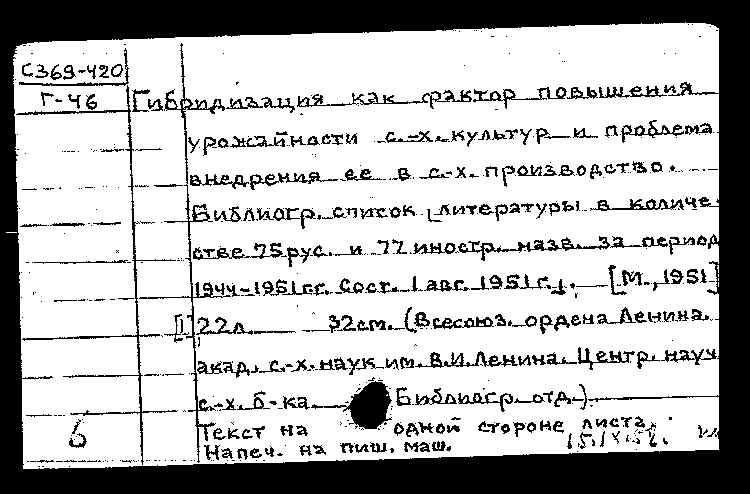 С369-420
Г-46 Гибридизация как фактор повышения
урожайности с.-х. культур и проблема
внедрения ее в с.-х. производство.
Библиогр. список [литературы в количе-
стве 75 рус. и 77 иностр. назв. за период
1944-1951 гг. Сост. 1 авг. 1951 г.]. [М., 1951]
[1] 22 л. 32 см. (Всесоюз. ордена Ленина.
акад. с.-х. наук им. В.И. Ленина. Центр. науч
с.-х. б-ка. Библиогр. отд.).
6 Текст на одной стороне листа.
Напеч. на пиш. маш.